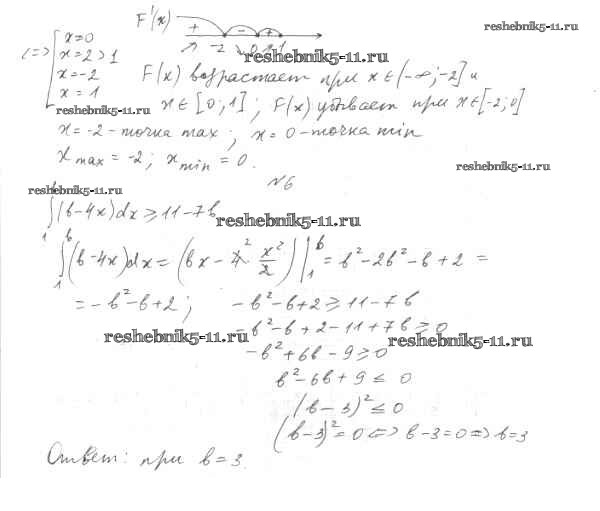 F'(x)
+ - +
-2 0 1
reshebnik5-11.ru
reshebnik5-11.ru
<=> [ x=0
x=2>1
x=-2
x=1
F(x) возрастает при x∈(-∞;-2] и
reshebnik5-11.ru
x∈[0;1]; F(x) убывает при x∈[-2;0]
x=-2-точка max; x=0-точка min
x max = -2; x min = 0.
reshebnik5-11.ru
№6
reshebnik5-11.ru
∫₁ᵇ(b-4x)dx ≥ 11-7b
reshebnik5-11.ru
∫₁ᵇ(b-4x)dx = (bx - 4 x²/2)|₁ᵇ = b²-2b²-b+2 =
= -b²-b+2; -b²-b+2 ≥ 11-7b
-b²-b+2-11+7b ≥ 0
reshebnik5-11.ru
reshebnik5-11.ru
-b²+6b-9 ≥ 0
b²-6b+9 ≤ 0
(b-3)² ≤ 0
(b-3)²=0 <=> b-3=0 => b=3
Ответ: при b=3.